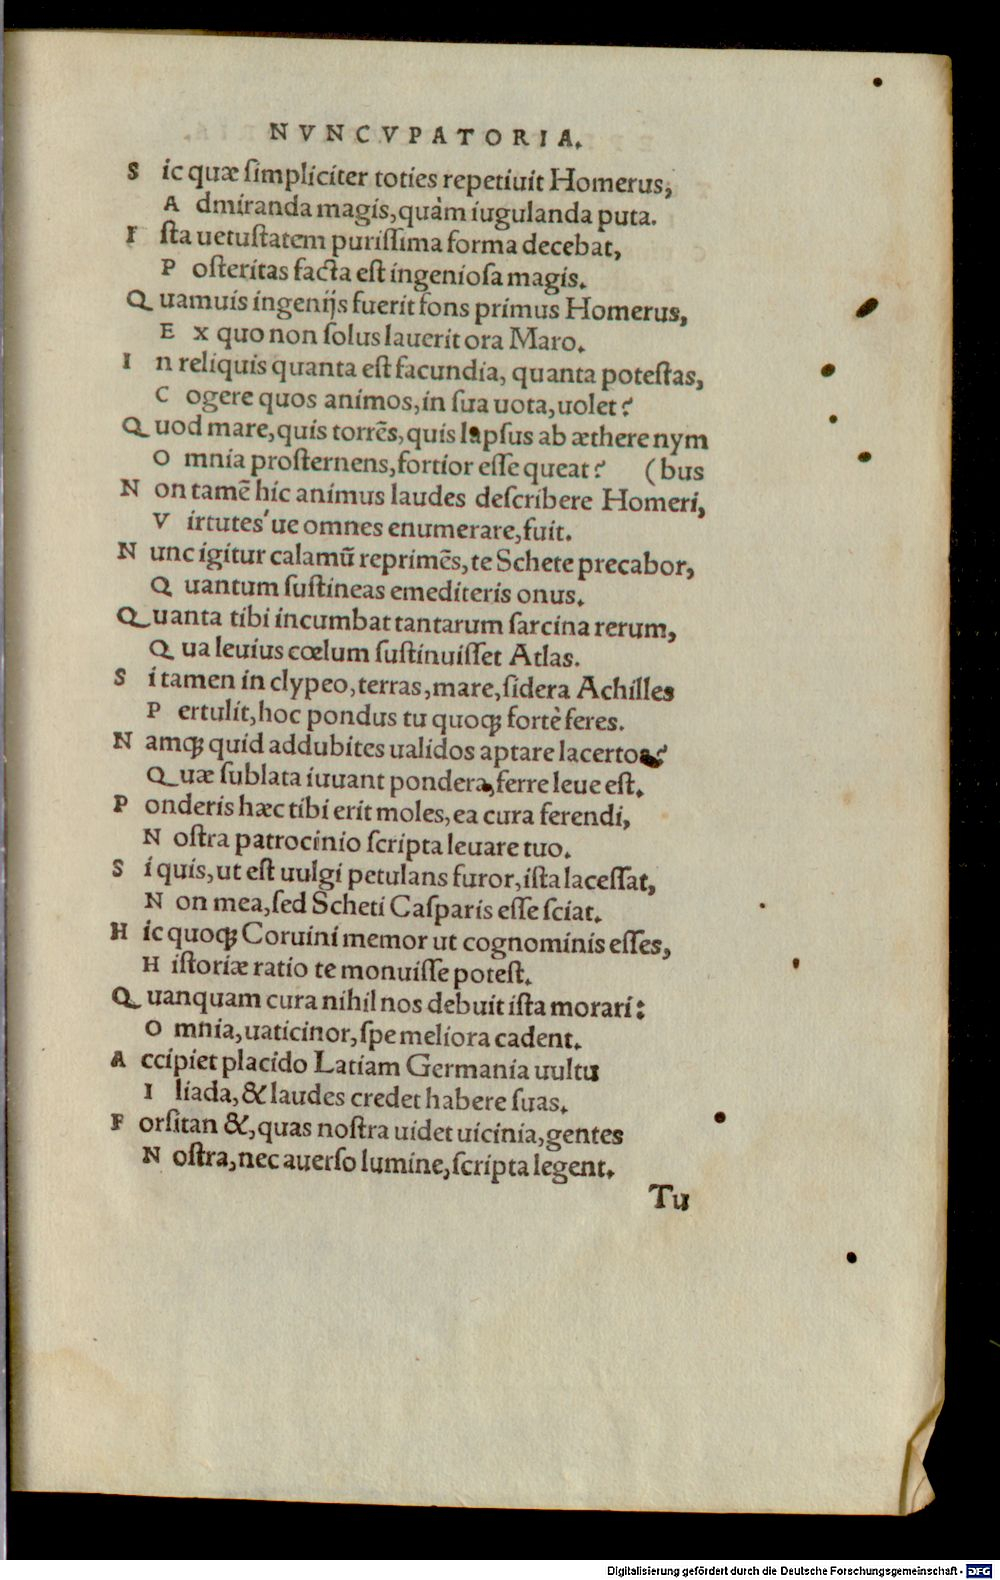 NVNCVPATORIA.
S ic quæ ſimpliciter toties repetiuit Homerus,
A dmiranda magis, quàm iugulanda puta.
I ſta uetuſtatem puriſſima forma decebat,
P oſteritas facta eſt ingenioſa magis.
Q uamuis ingenijs fuerit fons primus Homerus,
E x quo non ſolus lauerit ora Maro.
I n reliquis quanta eſt facundia, quanta poteſtas,
C ogere quos animos, in ſua uota, uolet?
Q uod mare, quis torrēs, quis lapſus ab æthere nym
O mnia proſternens, fortior eſſe queat? (bus
N on tamē hic animus laudes deſcribere Homeri,
V irtutes'ue omnes enumerare, fuit.
N unc igitur calamū reprimēs, te Schete precabor,
Q uantum ſuſtineas emediteris onus.
Q uanta tibi incumbat tantarum ſarcina rerum,
Q ua leuius cœlum ſuſtinuiſſet Atlas.
S i tamen in clypeo, terras, mare, ſidera Achilles
P ertulit, hoc pondus tu quoqꝫ fortè feres.
N amqꝫ quid addubites ualidos aptare lacertos?
Q uæ ſublata iuuant pondera, ferre leue eſt.
P onderis hæc tibi erit moles, ea cura ferendi,
N oſtra patrocinio ſcripta leuare tuo.
S i quis, ut eſt uulgi petulans furor, iſta laceſſat,
N on mea, ſed Scheti Caſparis eſſe ſciat.
H ic quoqꝫ Coruini memor ut cognominis eſſes,
H iſtoriæ ratio te monuiſſe poteſt.
Q uanquam cura nihil nos debuit iſta morari:
O mnia, uaticinor, ſpe meliora cadent.
A ccipiet placido Latiam Germania uultu
I liada, & laudes credet habere ſuas.
F orſitan &, quas noſtra uidet uicinia, gentes
N oſtra, nec auerſo lumine, ſcripta legent.
Tu
Digitalisierung gefördert durch die Deutsche Forschungsgemeinschaft - DFG